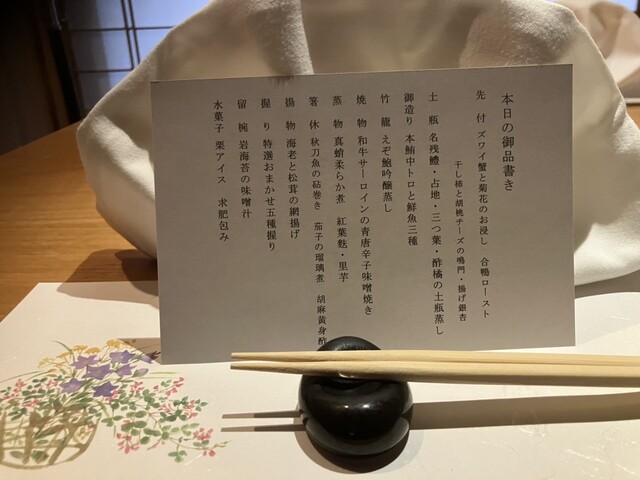 本日の御品書き
先　付 ズワイ蟹と菊花のお浸し　合鴨ロースト
干し柿と胡桃チーズの鳴門・揚げ銀杏
土　瓶 名残鱧・占地・三つ葉・酢橘の土瓶蒸し
御造り 本鮪中トロと鮮魚三種
竹　籠 えぞ鮑吟醸蒸し
焼　物 和牛サーロインの青唐辛子味噌焼き
蒸　物 真蛸柔らか煮　紅葉麩・里芋
箸　休 秋刀魚の砧巻き　茄子の瑠璃煮　胡麻黄身酢
揚　物 海老と松茸の網揚げ
握　り 特選おまかせ五種握り
留　椀 岩海苔の味噌汁
水菓子 栗アイス　求肥包み